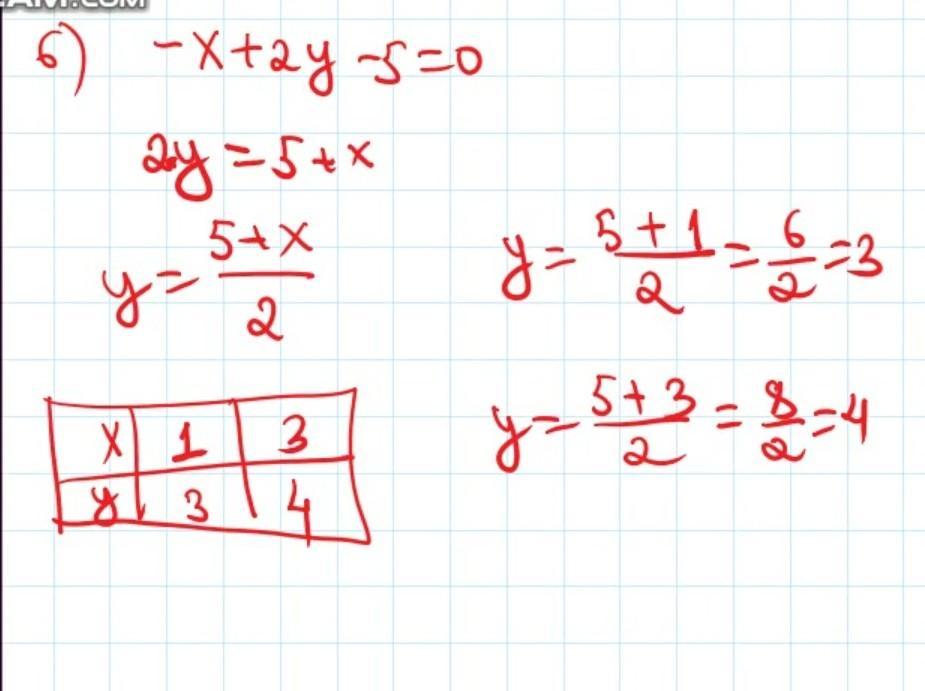 б) -x+2y-5=0
2y=5+x
y=\frac{5+x}{2}
y=\frac{5+1}{2}=\frac{6}{2}=3
y=\frac{5+3}{2}=\frac{8}{2}=4
x 1 3
y 3 4